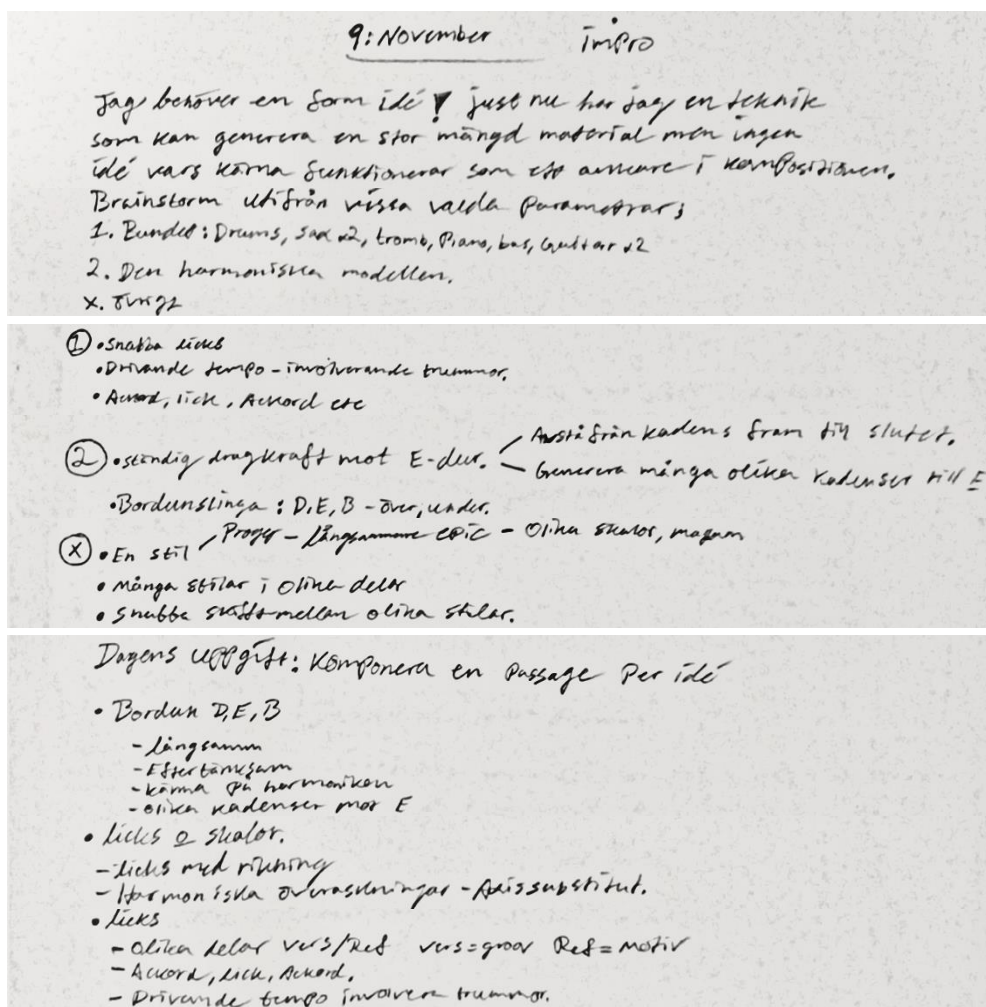 9:November Impro
Jag behöver en form idé! just nu har jag en teknik
som kan generera en stor mängd material men ingen
idé vars kärna funktionerar som ett ankare i kompositionen.
Brainstorm utifrån vissa valda parametrar;
1. Bandet: Drums, sax x2, tromb, Piano, bas, Guitar x2
2. Den harmoniska modellen.
x. övrigt
① • Snabba licks
• Drivande tempo - involverande trummor.
• Ackord, lick, Ackord etc
② • ständig dragkraft mot E-dur. - Avstå från kadens fram till slutet.
- Generera många olika kadenser till E
• Bordunslinga: D, E, B - över, under.
Ⓧ • En stil / Proger - långsammare epic - Olika skalor,
• Många stilar i Olika delar
• Snabba skift mellan olika stilar.
Dagens uppgift: Komponera en passage Per idé
• Bordun D, E, B
- långsamm
- Eftertänksam
- känna på harmoniken
- olika kadenser mot E
• licks o skalor.
- licks med riktning
- Harmoniska överaskningar - Axissubstitut.
• licks
- Olika delar vers/Ref vers=groov Ref=motiv
- Ackord, lick, Ackord.
- Drivande tempo involvera trummor.